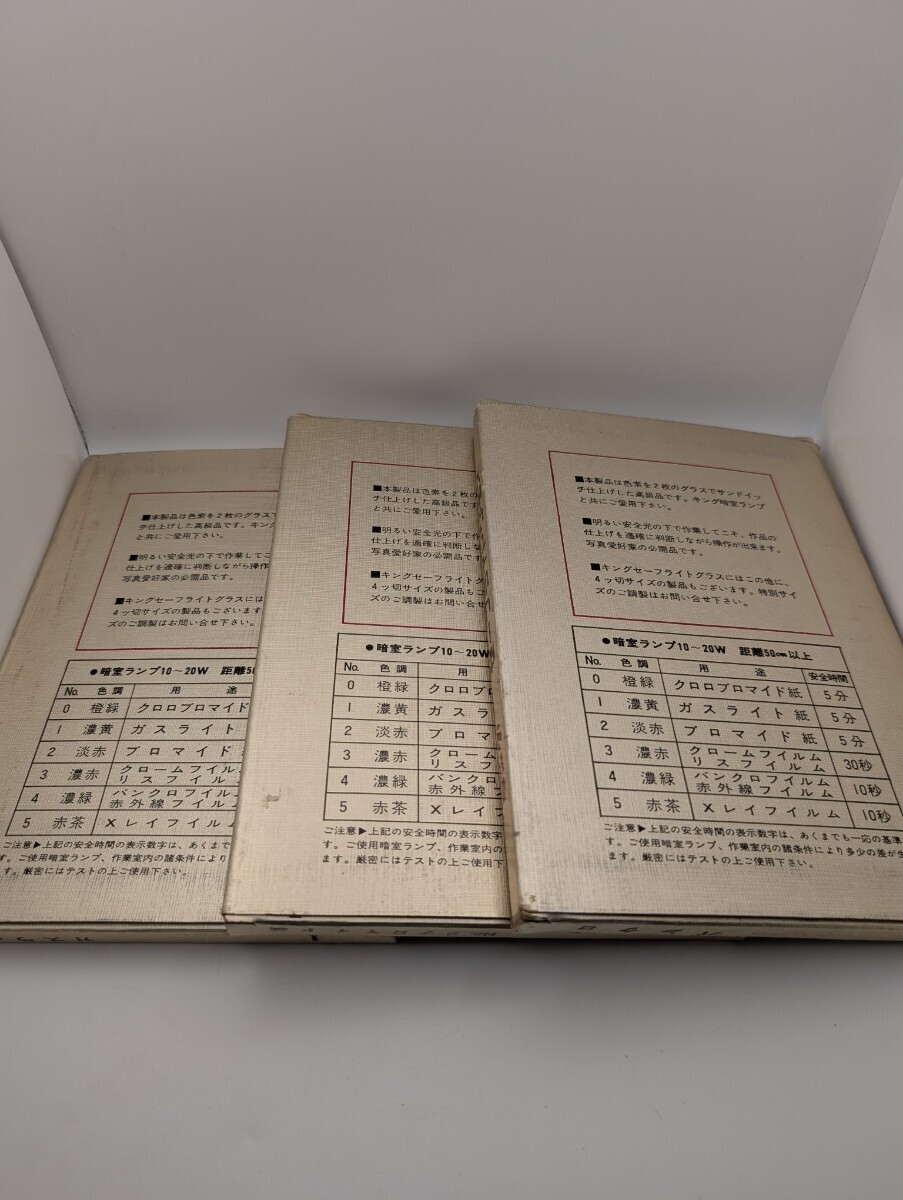 ■本製品は色素を2枚のグラスで
チ仕上げした高級品です。キング
と共にご愛用下さい。
■明るい安全光の下で作業してこ
仕上げを適確に判断しながら操作
写真愛好家の必需品です。
■キングセーフライトグラスには
4ッ切サイズの製品もございます
ズのご調製はお問い合せ下さい。
●暗室ランプ10〜20W 距離5
No. 色調 用途
0 橙緑 クロロブロマイド
1 濃黄 ガスライト
2 淡赤 ブロマイド
3 濃赤 クロームフィルム
リスフィルム
4 濃緑 パンクロフイルム
赤外線フイルム
5 赤茶 Xレイフイルム
ご注意▶上記の安全時間の表示数字は、あくまで
す。ご使用暗室ランプ、作業室内の諸条件により
ます。厳密にはテストの上ご使用下さい。
■本製品は色素を2枚の
チ仕上げした高級品です
と共にご愛用下さい。
■明るい安全光の下で作
仕上げを適確に判断しな
写真愛好家の必需品です
■キングセーフライトグ
4ッ切サイズの製品も
ズのご調製はお問い合せ
●暗室ランプ10〜20W
No. 色調 用
0 橙緑 クロロブ
1 濃黄 ガスラ
2 淡赤 ブロマ
3 濃赤 クローム
リスフ
4 濃緑 パンクロ
赤外線フ
5 赤茶 Xレイ
ご注意▶上記の安全時間の表示数
す。ご使用暗室ランプ、作業室内の
ます。厳密にはテストの上ご使用
■本製品は色素を2枚のグラスでサンドイッ
チ仕上げした高級品です。キング暗室ランプ
と共にご愛用下さい。
■明るい安全光の下で作業してこそ、作品の
仕上げを適確に判断しながら操作が出来ます。
写真愛好家の必需品です。
■キングセーフライトグラスにはこの他に、
4ッ切サイズの製品もございます。特別サイ
ズのご調製はお問い合せ下さい。
●暗室ランプ10〜20W 距離50cm以上
No. 色調 用途 安全時間
0 橙緑 クロロブロマイド紙 5分
1 濃黄 ガスライト紙 5分
2 淡赤 ブロマイド紙 5分
3 濃赤 クロームフィルム
リスフィルム 30秒
4 濃緑 パンクロフイルム
赤外線フイルム 10秒
5 赤茶 Xレイフイルム 10秒
ご注意▶上記の安全時間の表示数字は、あくまでも一応の基準
す。ご使用暗室ランプ、作業室内の諸条件により多少の差が生
ます。厳密にはテストの上ご使用下さい。
ガスラ
パンクロ